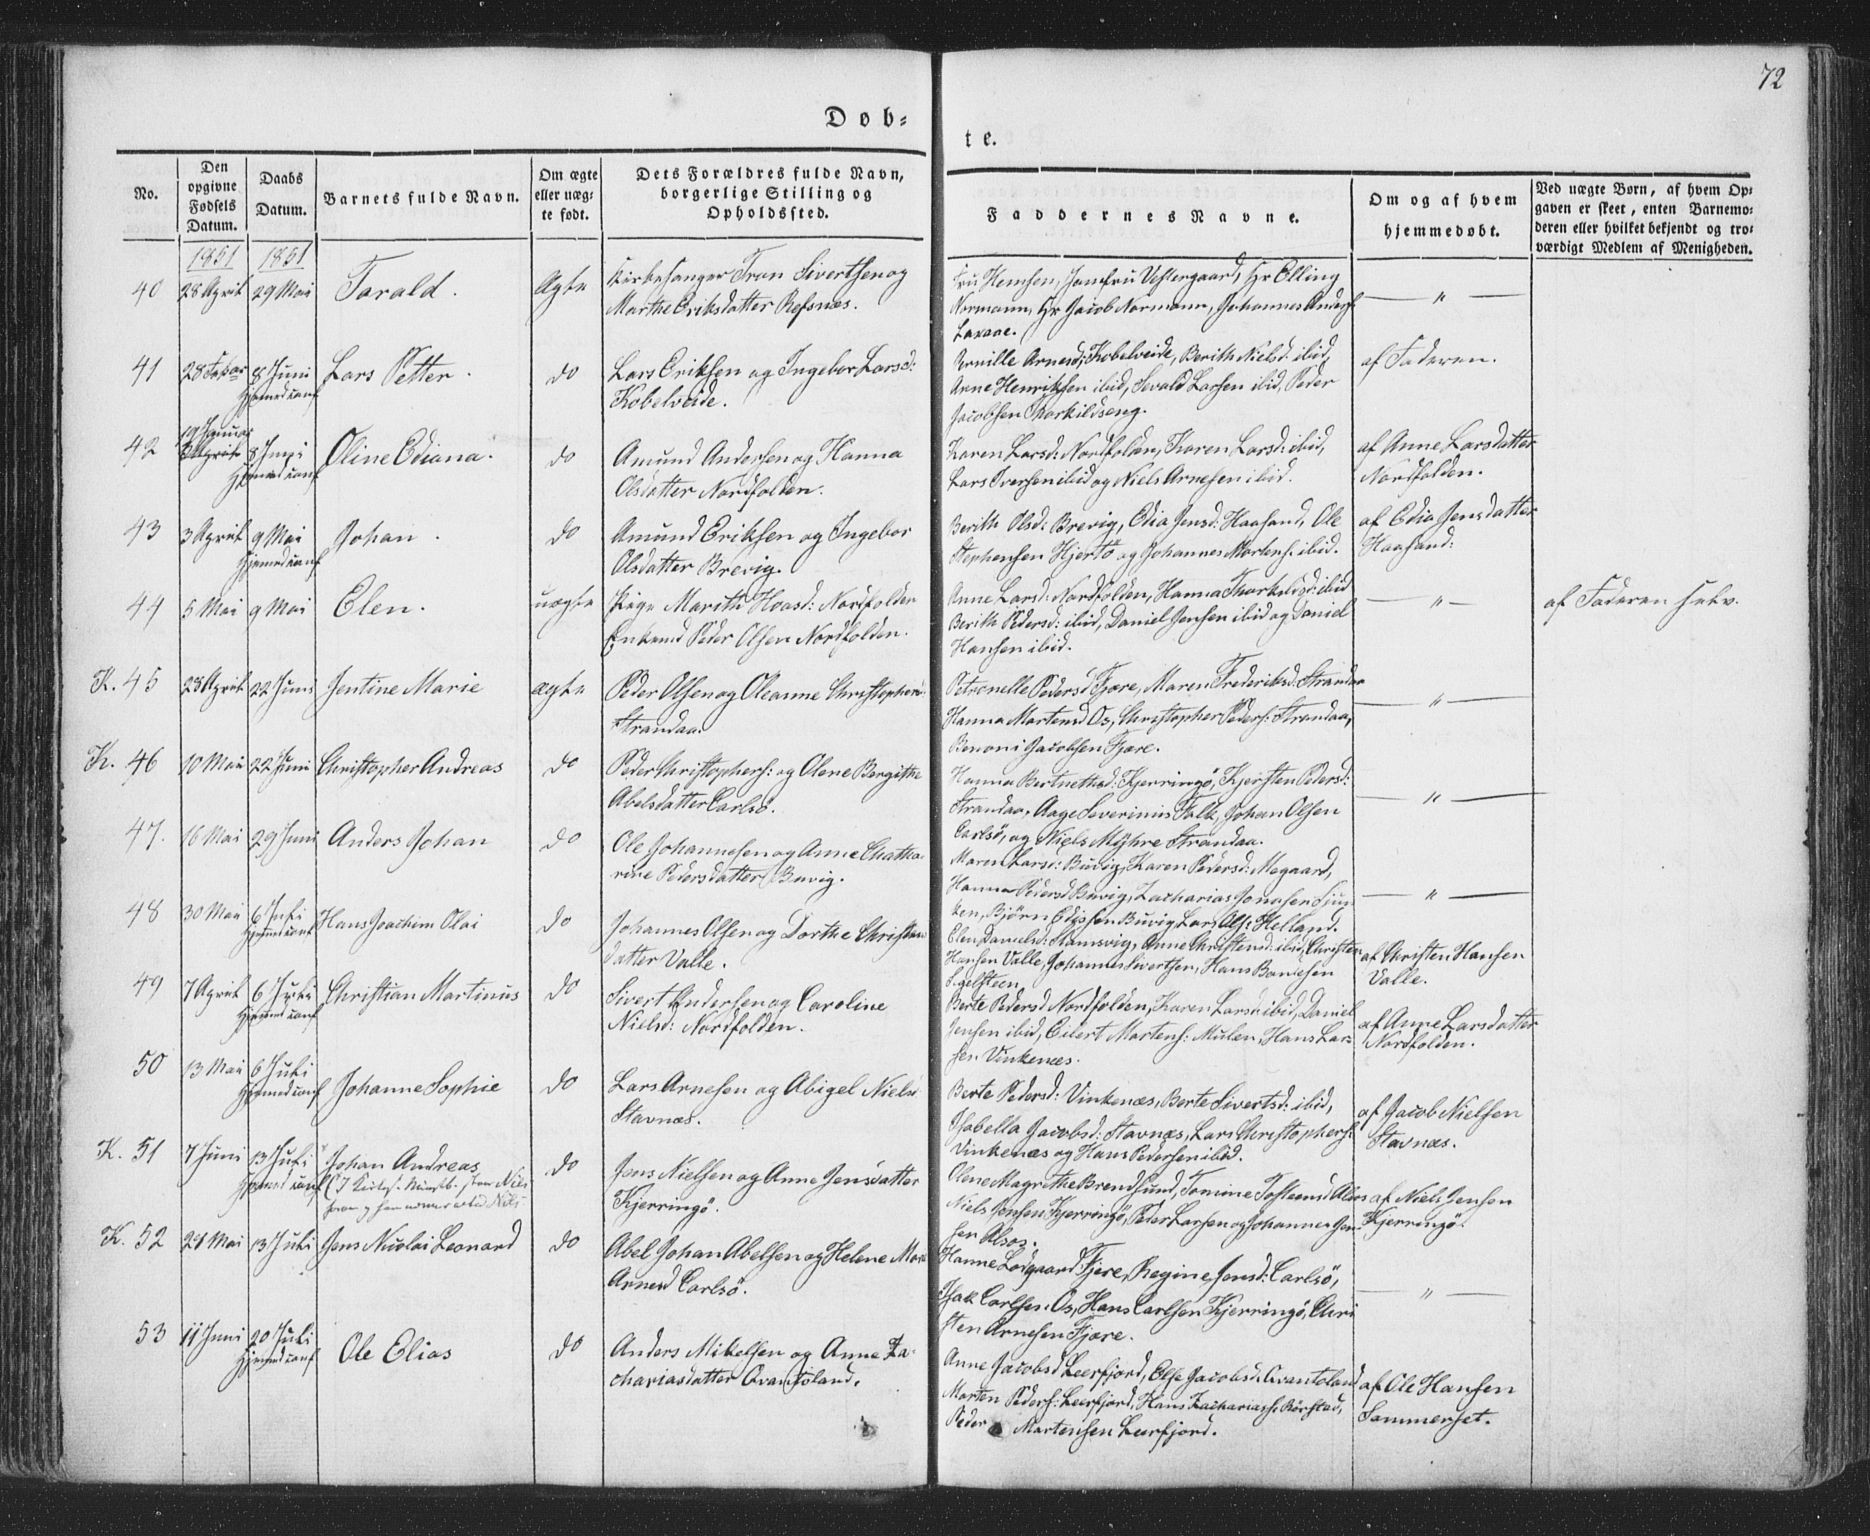 72
Døb-
te.
No.
Den opgivne Fødsels Datum.
Daabs Datum.
Barnets fulde Navn.
Om ægte eller uægte født.
Dets Forældres fulde Navn, borgerlige Stilling og Opholdssted.
Faddernes Navne.
Om og af hvem hjemmedøbt.
Ved uægte Børn, af hvem Opgaven er skeet, enten Barnemoderen eller hvilket bekjendt og troværdigt Medlem af Menigheden.
1851 1851
40 28 April 29 Mai Tarald. Ægte Kirkesanger Tron Sivertsen og
Marthe Eriksdatter Røsnæs.
Fru Hemsen, Jomfru Vestergaard, Hr Elling
Normann, Hr Jacob Normann, Johannes Anders:
Laxaae.
— " —
41 28 Febar 8 Juni Lars Petter. do Lars Eriksen og Ingebor Larsd:
Hjemed conf Kobelveide.
Pernille Arnesd: Kobelveide, Berith Nielsd: ibid,
Anne Henriksen ibid, Sevald Larsen ibid, Peder
Jacobsen Thorkildseng.
af Faderen.
42 19 Januar 8 Juni Oline Ediana. do Amund Andersen og Hanna
Hjemed conf Olsdatter Nordfolden.
Karen Larsd: Nordfolden, Karen Larsd: ibid,
Lars Iversen ibid og Niels Arnesen ibid.
af Anne Larsdatter
Nordfolden.
43 3 April 9 Mai Johan. do Amund Eriksen og Ingebor
Hjemed conf Olsdatter Brevig.
Berith Olsd: Brevig, Edia Jensd: Haasand, Ole
Stephensen Hjertø og Johannes Mortens: ibid.
af Edia Jensdatter
Haasand:
44 5 Mai 9 Mai Elen. uægte Pige Marith Hoasd: Nordfolden
Enkemd Peder Olsen Nordfolden.
Anne Larsd: Nordfolden, Hanna Thorkildsd: ibid
Berith Pedersd: ibid, Daniel Jensen ibid og Daniel
Hansen ibid.
— " —
af Faderen selv.
K. 45 23 April 22 Juni Jentine Marie ægte Peder Olsen og Oleanne Christophersd
Strandaa.
Petronelle Pedersd Fjære, Maren Frederiksd: Strandaa
Hanna Martensd Os, Christopher Peders: Strandaa,
Benoni Jacobsen Fjære.
— " —
K. 46 10 Mai 22 Juni Christopher Andreas do Peder Christophers: og Olene Bergithe
Abelsdatter Carlsø.
Hanna Bertnethsd: Kjerringø, Kjersten Pedersd:
Strandaa, Aage Severinus Falk, Johan Olsen
Carlsø, og Niels Myhre Strandaa.
— " —
47. 16 Mai 29 Juni Anders Johan do Ole Johannesen og Anne Catha-
rine Pedersdatter Buvig.
Maren Larsd: Buvig, Karen Pedersd: Megaard,
Hanna Pedersd Buvig, Zacharias Jonasen Sjun
ken, Bjørn Edissen Buvig Lars Ols: Helland.
— " —
48 30 Mai 6 Juli Hans Joachem Olai do Johannes Olsen og Dorthe Christens
Hjemed conf datter Valle.
Elen Danielsd: Stamsvig, Anne Christensd: ibid, Christen
Hansen Valle, Johannes Sivertsen, Hans Bonesen
Sigelsteen
af Christen Hansen
Valle.
49 7 April 6 Juli Christian Martinus do Sivert Andersen og Caroline
Hjemed conf Nielsd: Nordfolden.
Berte Pedersd Nordfolden, Karen Larsd: ibid, Daniel
Jensen ibid, Edert Martens: Mulen, Hans Lar-
sen Vinkenæs.
af Anne Larsdatter
Nordfolden.
50 13 Mai 6 Juli Johanne Sophie do Lars Arnesen og Abigel Nielsd
Hjemed conf Stavnæs.
Berte Pedersd: Vinkenæs, Berte Sivertsd: ibid,
Isabella Jacobsd: Stavnæs, Lars Christophers:
Vinkenæs og Hans Pedersen ibid.
af Jacob Nielsen
Stavnæs.
K. 51 7 Juni 13 Juli Johan Andreas do Jens Nielsen og Anne Jensdatter
Hjemed conf Kjerringø.
Olene Magrethe Brendsund, Tomine Tosteensd Alsos
Niels Jensen Kjerringø, Peder Larsen og Johannes Jen
sen Alsos.
af Niels Jensen
Kjerringø.
K. 52 28 Mai 13 Juli Jens Nicolai Leonard do Abel Johan Abelsen og Helene Mar
Arnesd Carlsø.
Hanne Lødgaard Fjære, Regine Jensd: Carlsø,
Isak Carlsen Os, Hans Carlsen Kjerringø, Chri
sten Arnesen Fjære.
— " —
53 11 Juni 20 Juli Ole Elias do Anders Mikelsen og Anne Za-
Hjemed conf chariasdatter Qvantoland.
Anne Jacobsd Leerfjord, Else Jacobsd: Qvantoland
Marten Peders: Leerfjord, Hans Zacharias: Rørstad,
Peder Martensen Leerfjord.
af Ole Hansen
Sommerset.